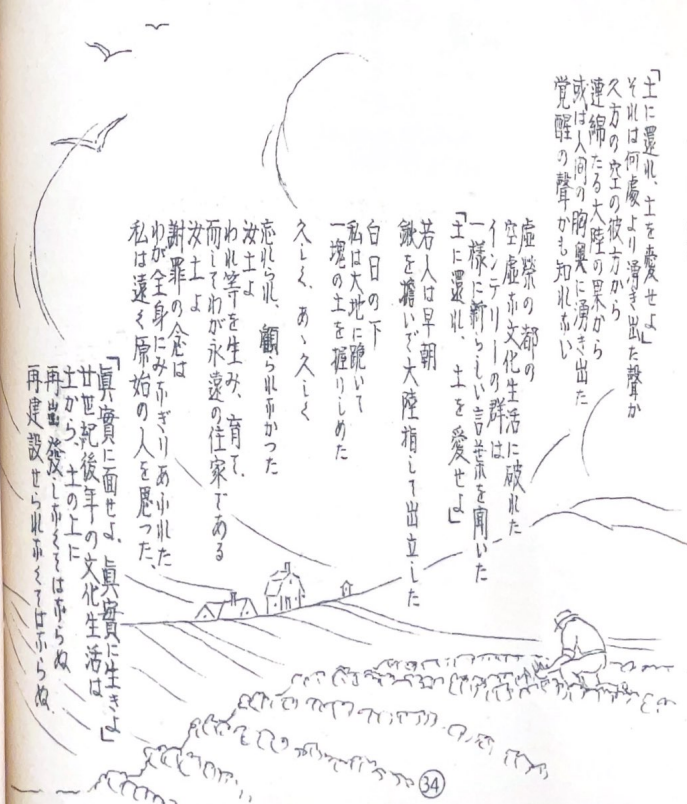 「土に還れ、土を愛せよ」
それは何處より湧き出た聲か
久方の空の彼方から
連綿たる大陸の果から
或は人間の胸奥に湧き出た
覚醒の聲かも知れない
虚榮の都の
空虚な文化生活に破れた
インテリーの群は
一様に新らしい言葉を聞いた
「土に還れ、土を愛せよ」
若人は早朝
鍬を擔いで大陸指して出立した
白日の下
私は大地に跪いて
一塊の土を握りしめた
久しく、あゝ久しく
忘れられ、顧られなかつた
汝土よ
われ等を生み、育て、
而してわが永遠の住家である
汝土よ
謝罪の念は
わが全身にみなぎりあふれた
私は遠く原始の人を思つた、
「眞實に面せよ、眞實に生きよ」
廿世紀後年の文化生活は
土から、土の上に
再出發しなくてはならぬ
再建設せられなくてはならぬ
34